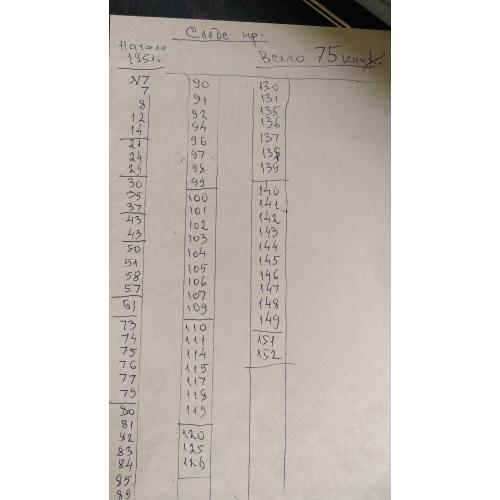 Следс пр.
Начало
1951г.
Всего 75 книг.
N7
7
8
12
14
21
24
29
30
35
37
43
43
50
51
58
57
61
73
74
75
76
77
79
80
81
82
83
84
85
89
90
91
92
94
96
97
98
99
100
101
102
103
104
105
106
107
109
110
111
114
115
117
118
119
120
125
126
130
131
135
136
137
138
139
140
141
142
143
144
145
146
147
148
149
151
152